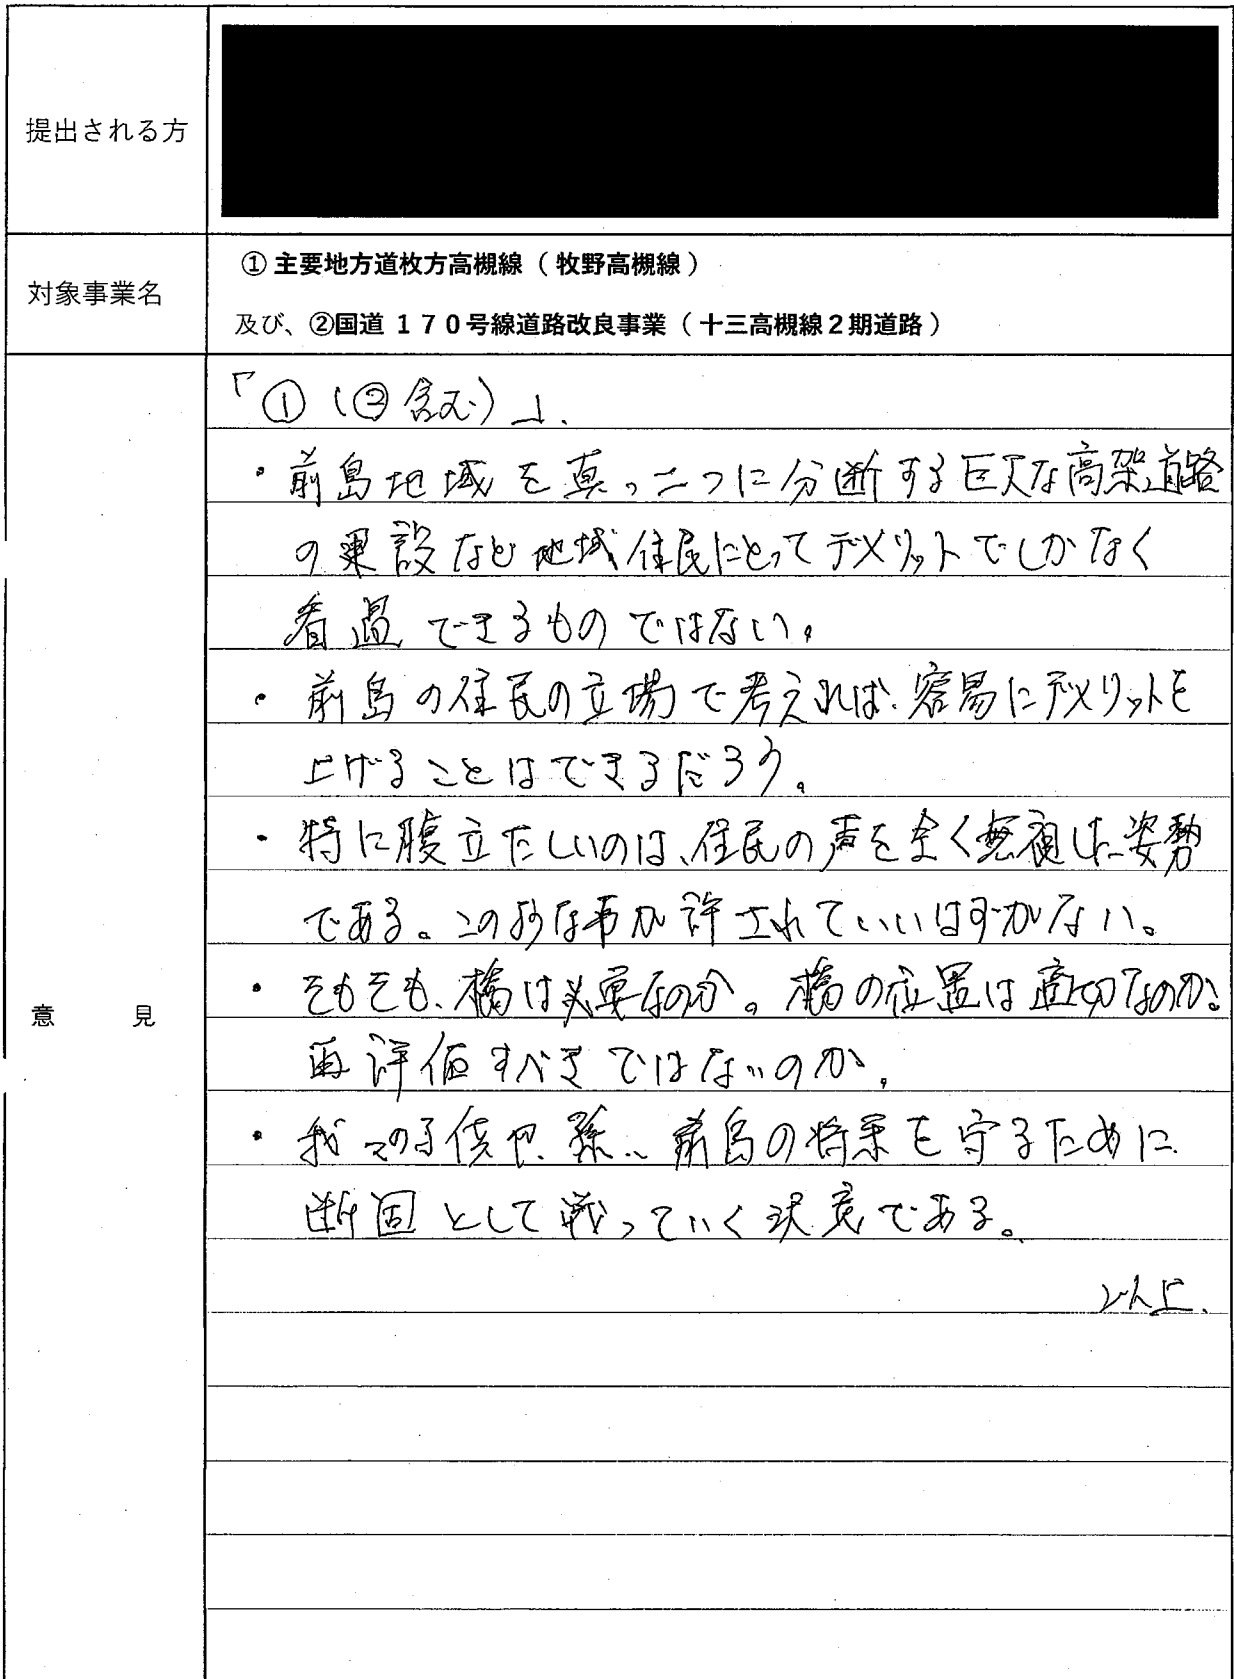 提出される方
対象事業名
① 主要地方道枚方高槻線（牧野高槻線）
及び、②国道１７０号線道路改良事業（十三高槻線２期道路）
意見
「①（②含む）」.
・前島地域を真っ二つに分断する巨大な高架道路
の建設など地域住民にとってデメリットでしかなく
看過できるものではない。
・前島の住民の立場で考えれば、容易にデメリットを
上げることはできるだろう。
・特に腹立たしいのは、住民の声を全く無視した姿勢
である。この様な事が許されていいはずがない。
・そもそも、橋は必要なのか。橋の位置は適切なのか。
再評価すべきではないのか。
・我々の子供や、孫、前島の将来を守るために
断固として戦っていく決意である。
以上.